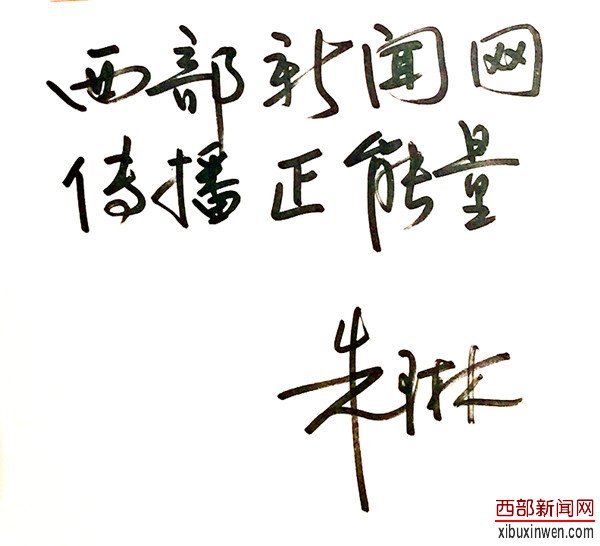 西部新闻网
传播正能量
朱琳
西部新闻网
xibuxinwen.com